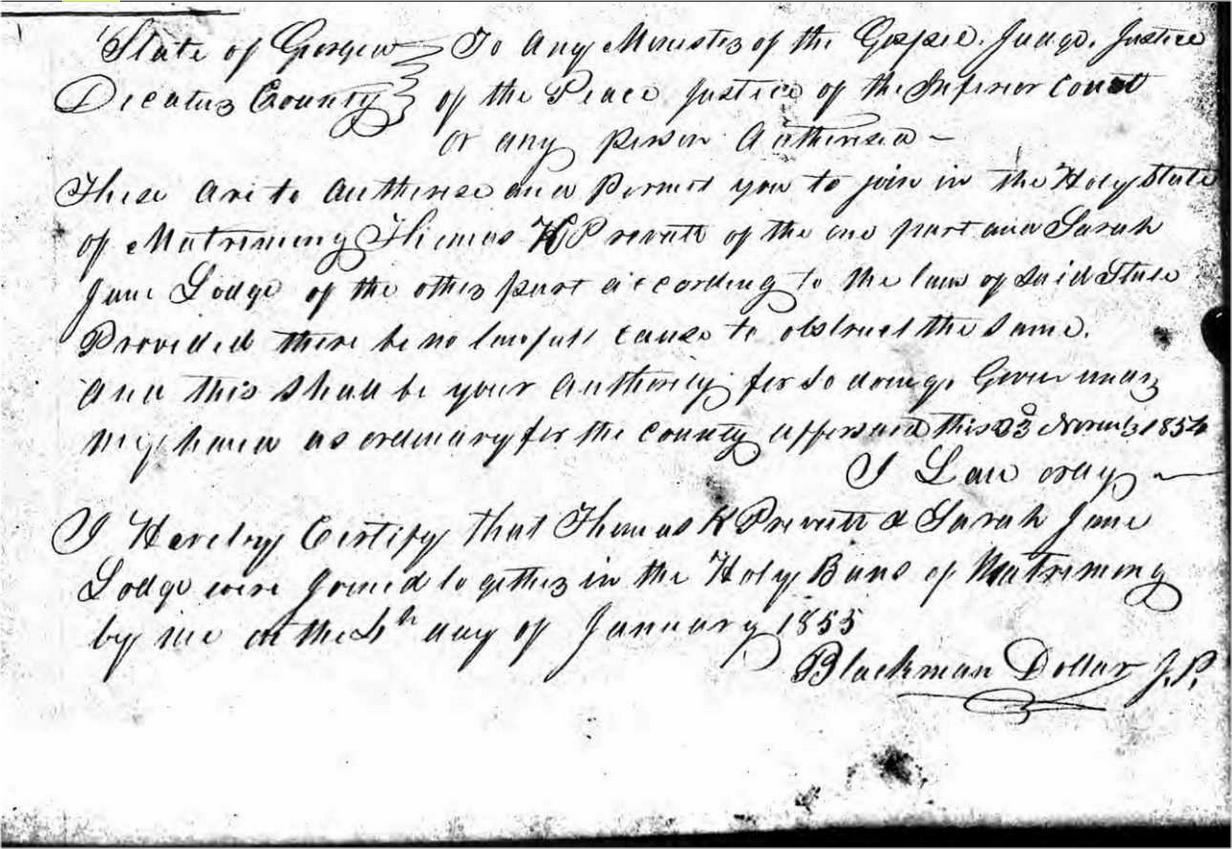 State of Georgia To Any Minister of the Gospel. Judge. Justice
Decatur County of the Peace Justice of the Inferior Court
or any person Autherised –
These are to Autherise and Permit you to join in the Holy State
of Matrimony Thomas K Prevatt of the one part and Sarah
Jane Lodge of the other part according to the laws of said State
Provided there be no lawfull cause to obstruct the same.
And this shall be your Authority for so doing. Given under
my hand as ordinary for the county afforsaid this 23d 1854
I Hereby Certify that Thomas K Prevatt & Sarah Jane
Lodge were Joined together in the Holy Bans of Matrimony
by me on the 4th day of January 1855
Blackman Dollar J.P.